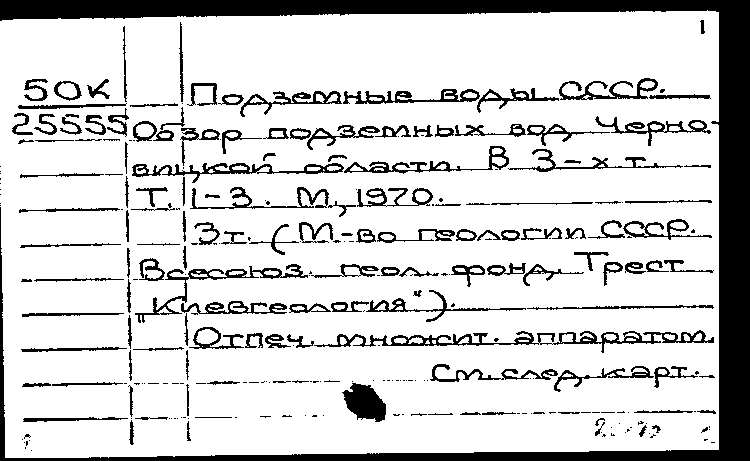 1
50К Подземные воды СССР.
25555 Обзор подземных вод Черно-
вицкой области. В 3-х т.
Т. 1-3. М., 1970.
3т. (М-во геологии СССР.
Всесоюз. геол. фонд, Трест
„Киевгеология“).
Отпеч. множит. аппаратом.
См. след. карт.